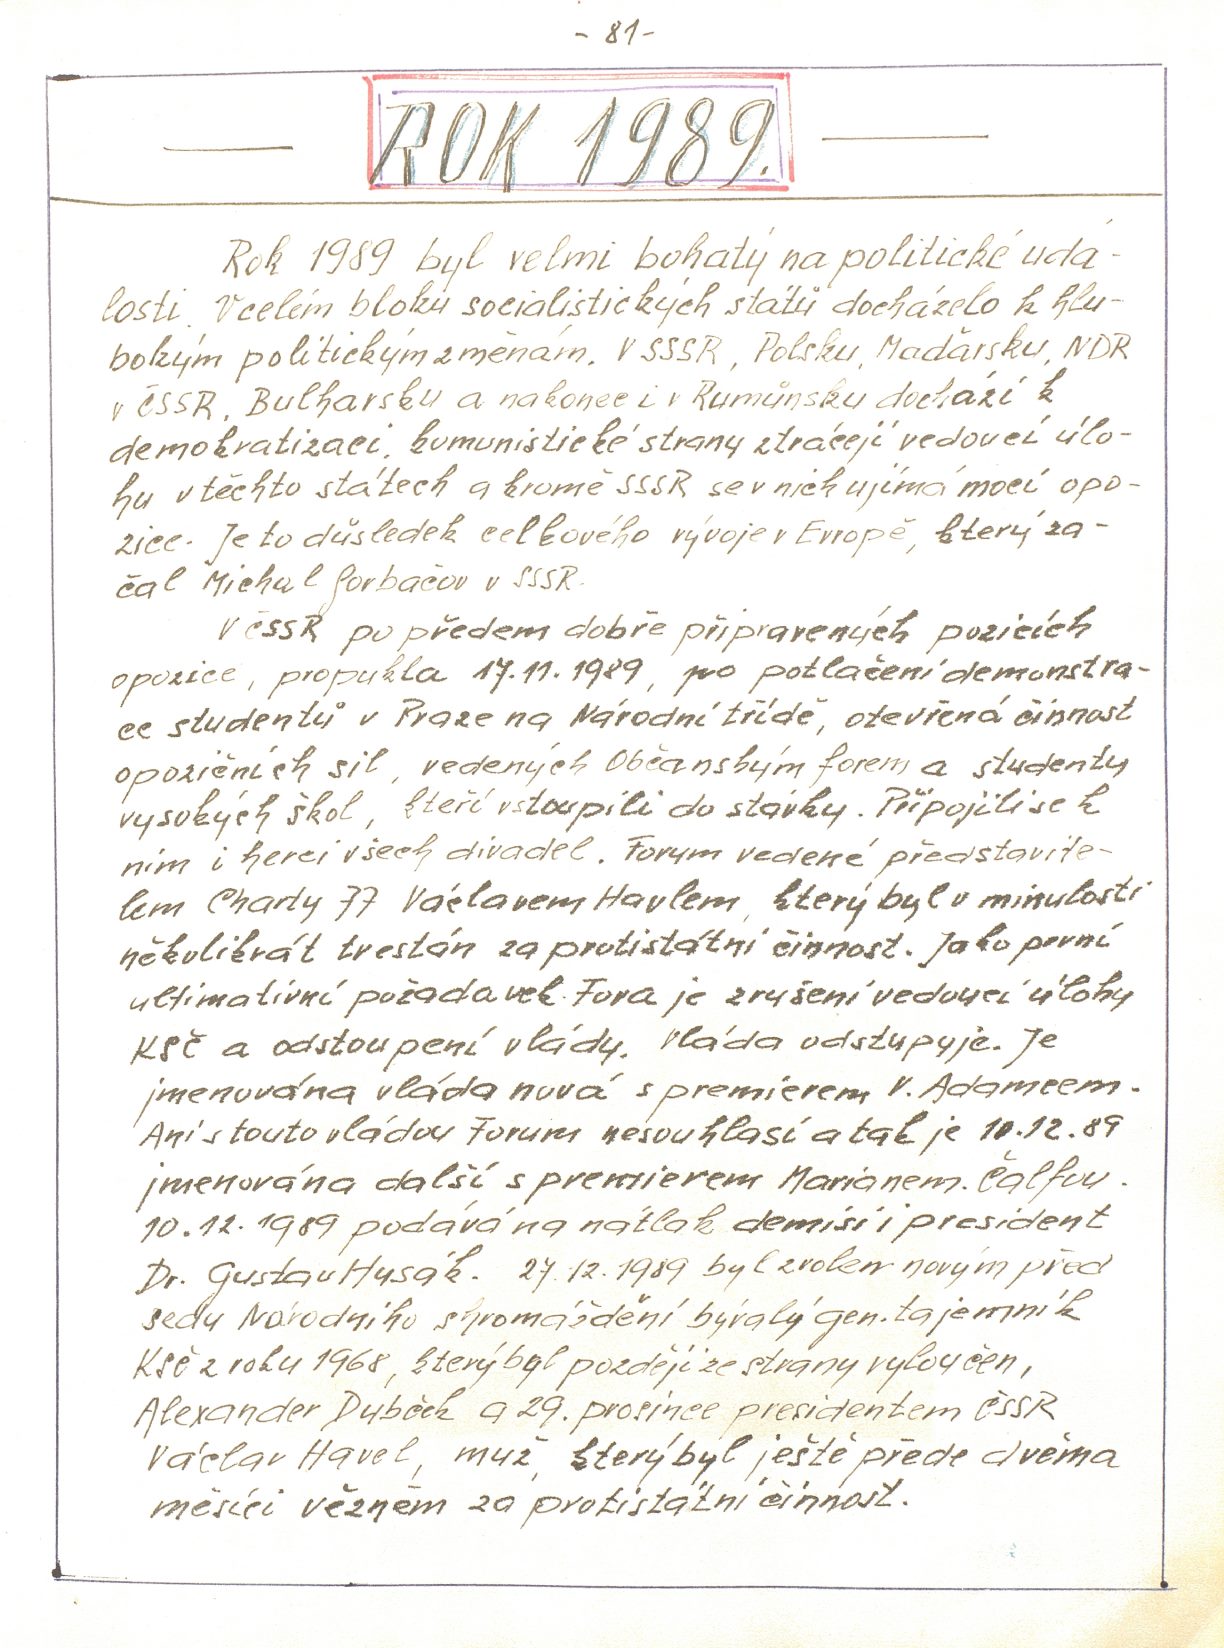 - 81 -
ROK 1989.
Rok 1989 byl velmi bohatý na politické udá-
losti. V celém bloku socialistických států docházelo k hlu-
bokým politickým změnám. V SSSR, Polsku, Maďarsku, NDR
v ČSSR, Bulharsku a nakonec i v Rumůnsku dochází k
demokratizaci, komunistické strany ztrácejí vedoucí úlo-
hu v těchto státech a kromě SSSR se v nich ujímá moci opo-
zice. Je to důsledek celkového vývoje v Evropě, který za-
čal Michal Gorbačov v SSSR.
V ČSSR po předem dobře připravených pozicích
opozice, propukla 17.11.1989, po potlačení demonstra-
ce studentů v Praze na Národní třídě, otevřená činnost
opozičních sil, vedených Občanským forem a studenty
vysokých škol, kteří vstoupili do stávky. Připojili se k
nim i herci všech divadel. Forum vedené představite-
lem Charty 77 Václavem Havlem, který byl v minulosti
několikrát trestán za protistátní činnost. Jako první
ultimativní požadavek Fora je zrušení vedoucí úlohy
KSČ a odstoupení vlády. Vláda odstupyje. Je
jmenována vláda nová s premierem V. Adamcem.
Ani s touto vládou Forum nesouhlasí a tak je 10.12.89
jmenována další s premierem Marianem Čalfou.
10.12.1989 podává na nátlak demisi i president
Dr. Gustav Husák. 27.12.1989 byl zvolen novým před
sedu Národního shromáždění bývalý gen. tajemník
KSČ z roku 1968, který byl později ze strany vyloučen,
Alexander Dubček a 29. prosince presidentem ČSSR
Václav Havel, muž, který byl ještě přede dvěma
měsíci vězněm za protistátní činnost.